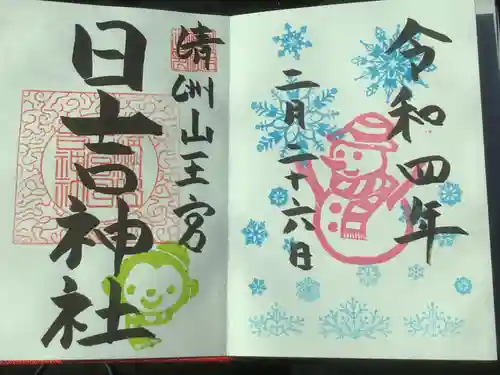 令和四年
二月二十六日
清洲山王宮
日吉神社